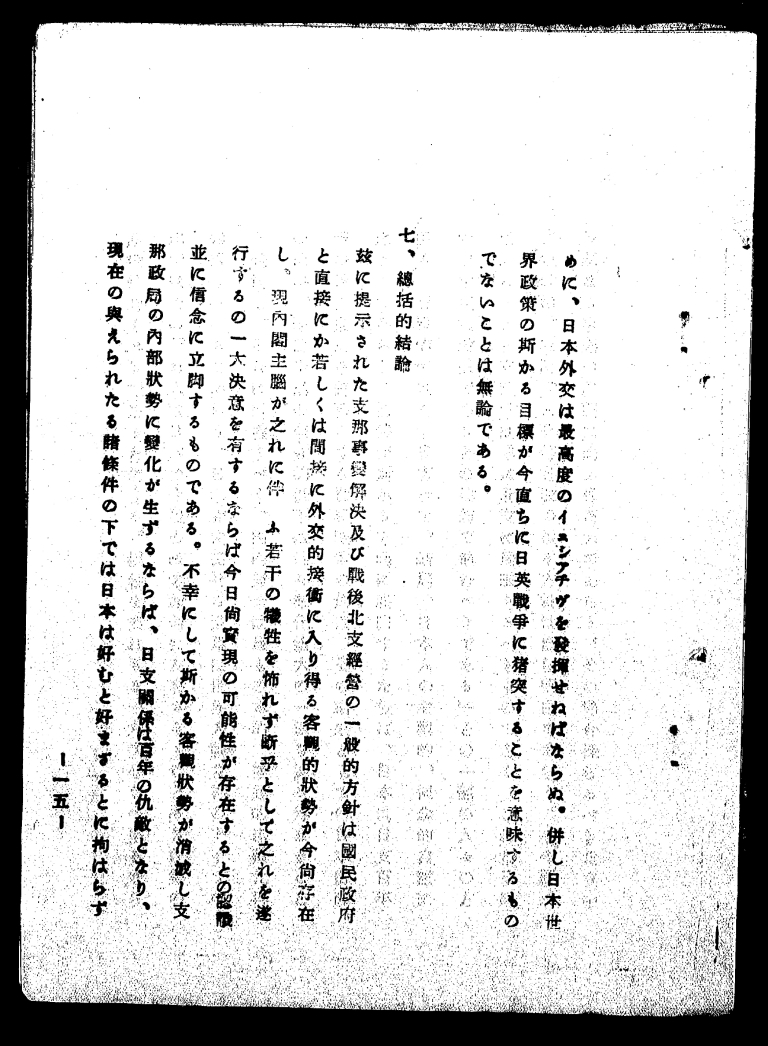 めに、日本外交は最高度のイニシアチヴを發揮せねばならぬ。併し日本世
界政策の斯かる目標が今直ちに日英戰爭に猪突することを意味するもの
でないことは無論である。
七、總括的結論
玆に提示された支那事變解決及び戰後北支經營の一般的方針は國民政府
と直接にか若しくは間接に外交的接衝に入り得る客觀的狀勢が今尙存在
し。現內閣主腦が之れに伴ふ若干の犧牲を怖れず斷乎として之れを遂
行するの一大決意を有するならば今日尙實現の可能性が存在するとの認識
並に信念に立脚するものである。不幸にして斯かる客觀狀勢が消滅し支
那政局の內部狀勢に變化が生ずるならば、日支關係は百年の仇敵となり、
現在の與えられたる諸條件の下では日本は好むと好まざるとに拘はらず
―一五―